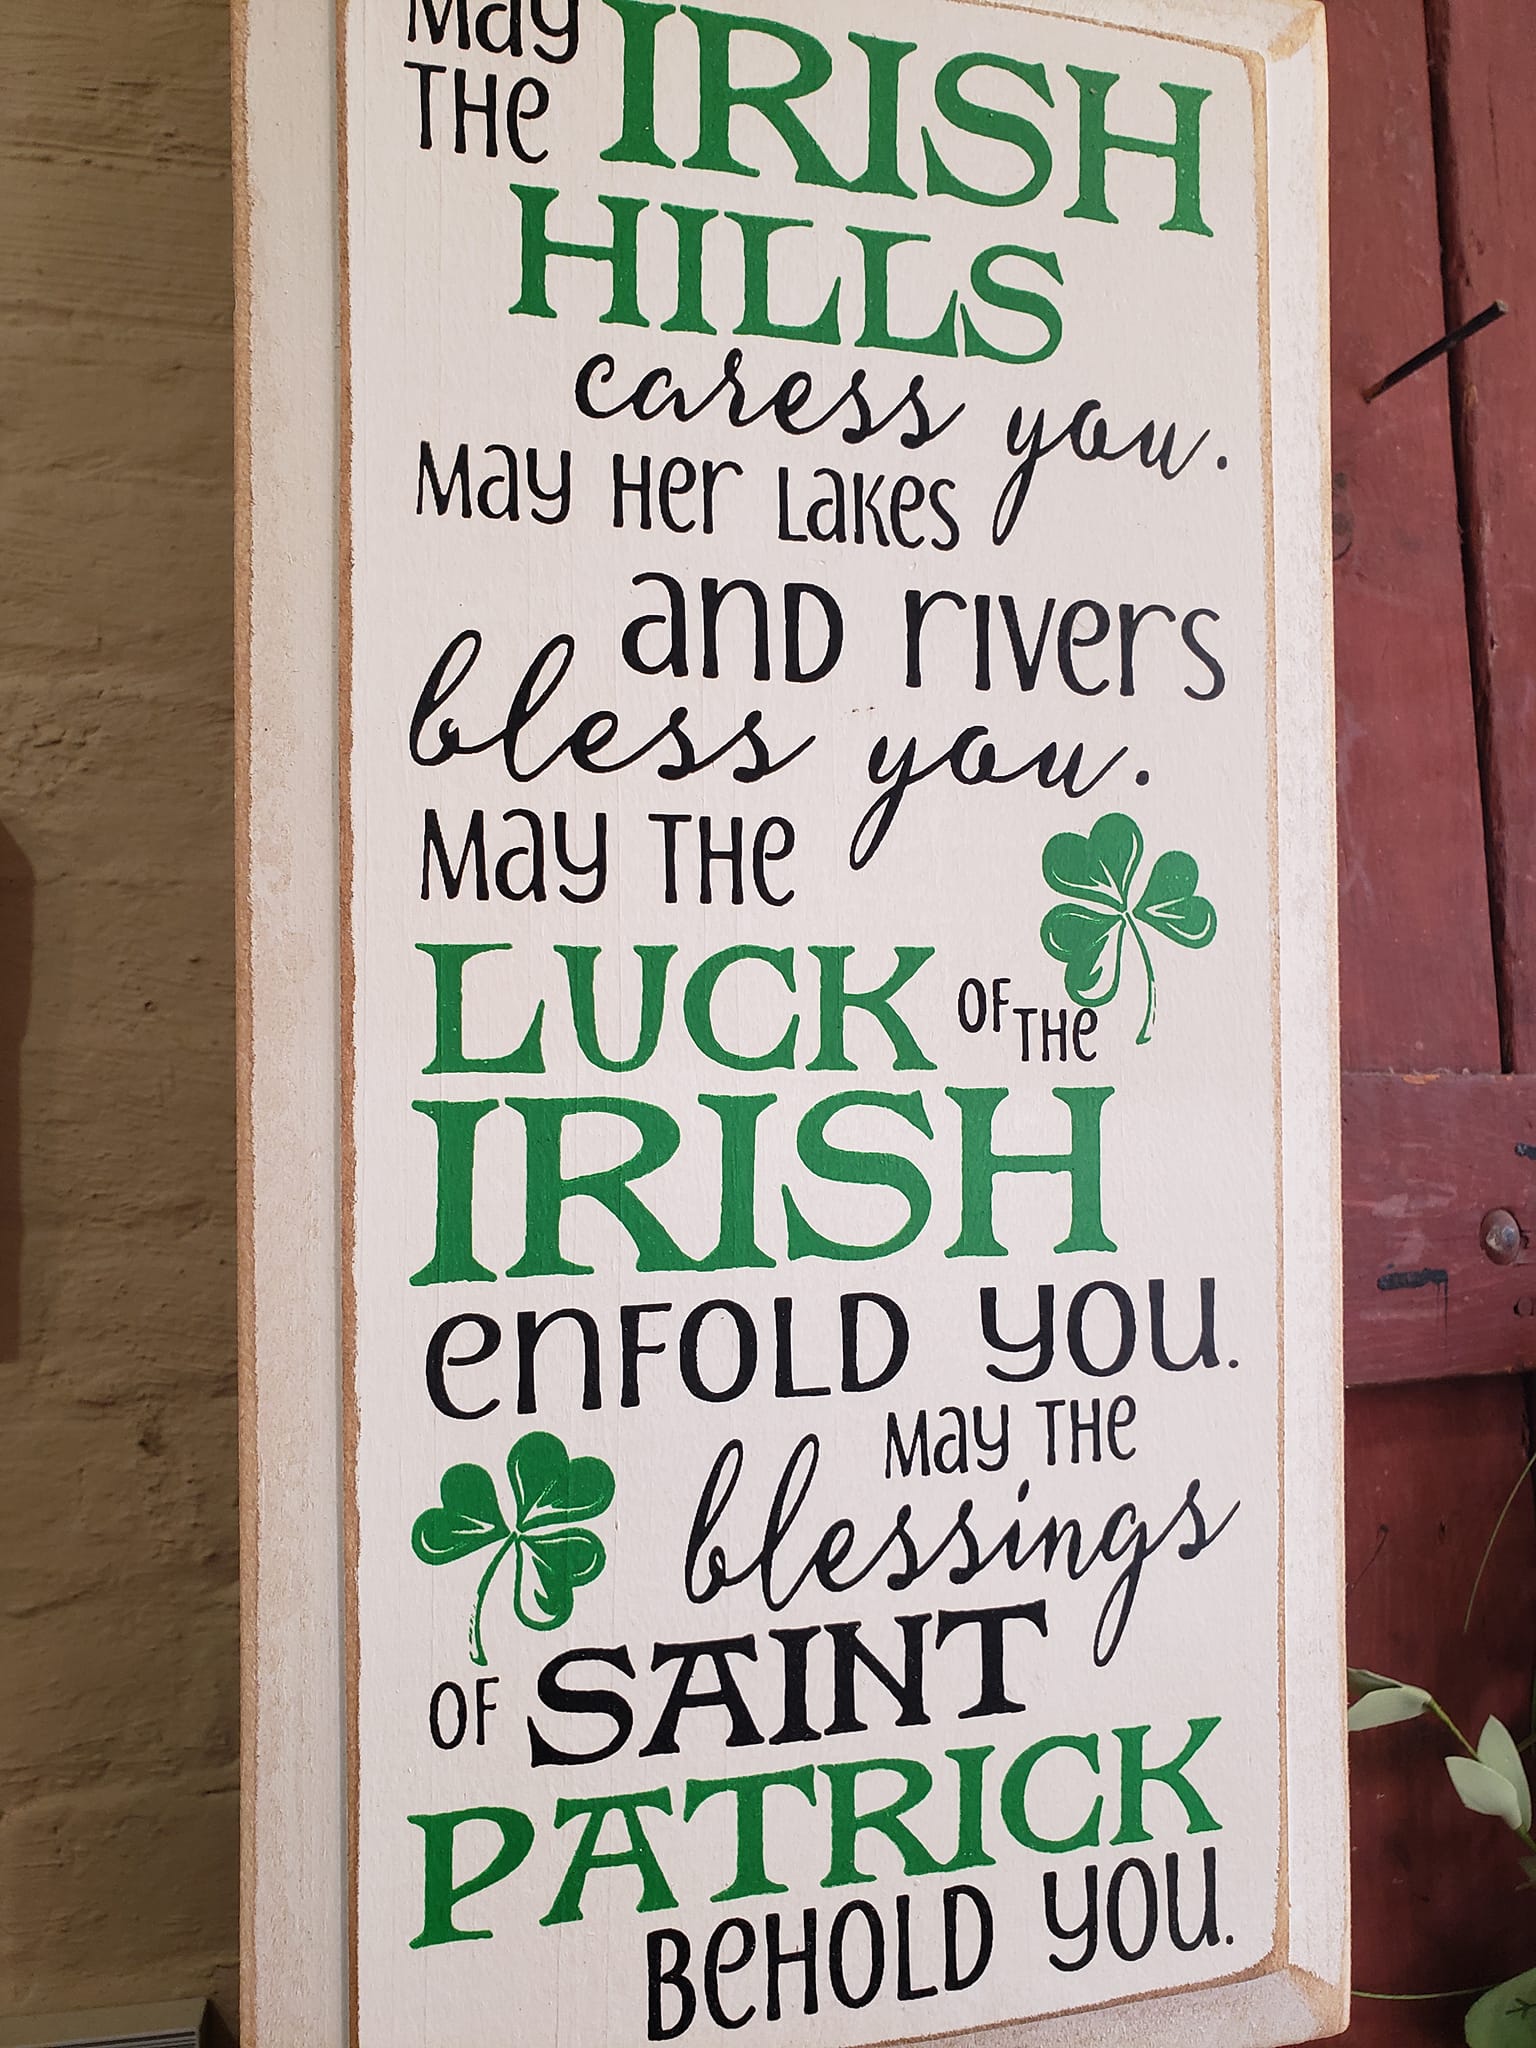 May
THe IRISH
HILLS
caress you.
May Her Lakes
and rivers
bless you.
May THe
LUCK OF THe
IRISH
enFOLD YOU.
May THe
blessings
OF SAINT
PATRICK
BeHOLD YOU.